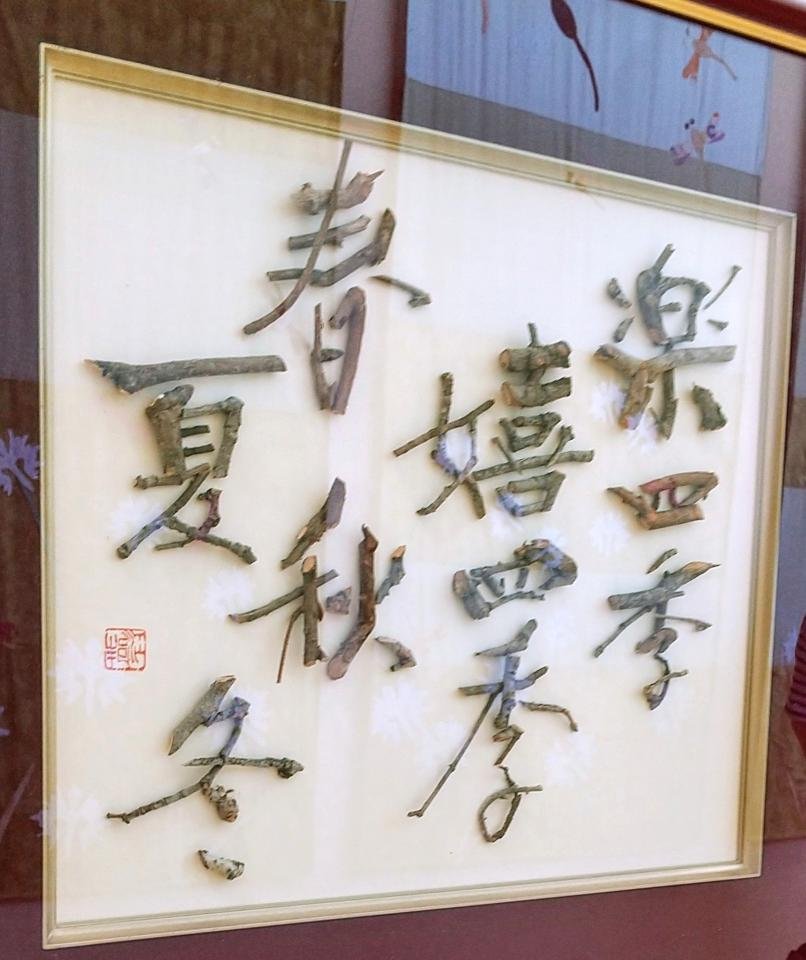 楽四季
嬉四季
春秋
夏冬